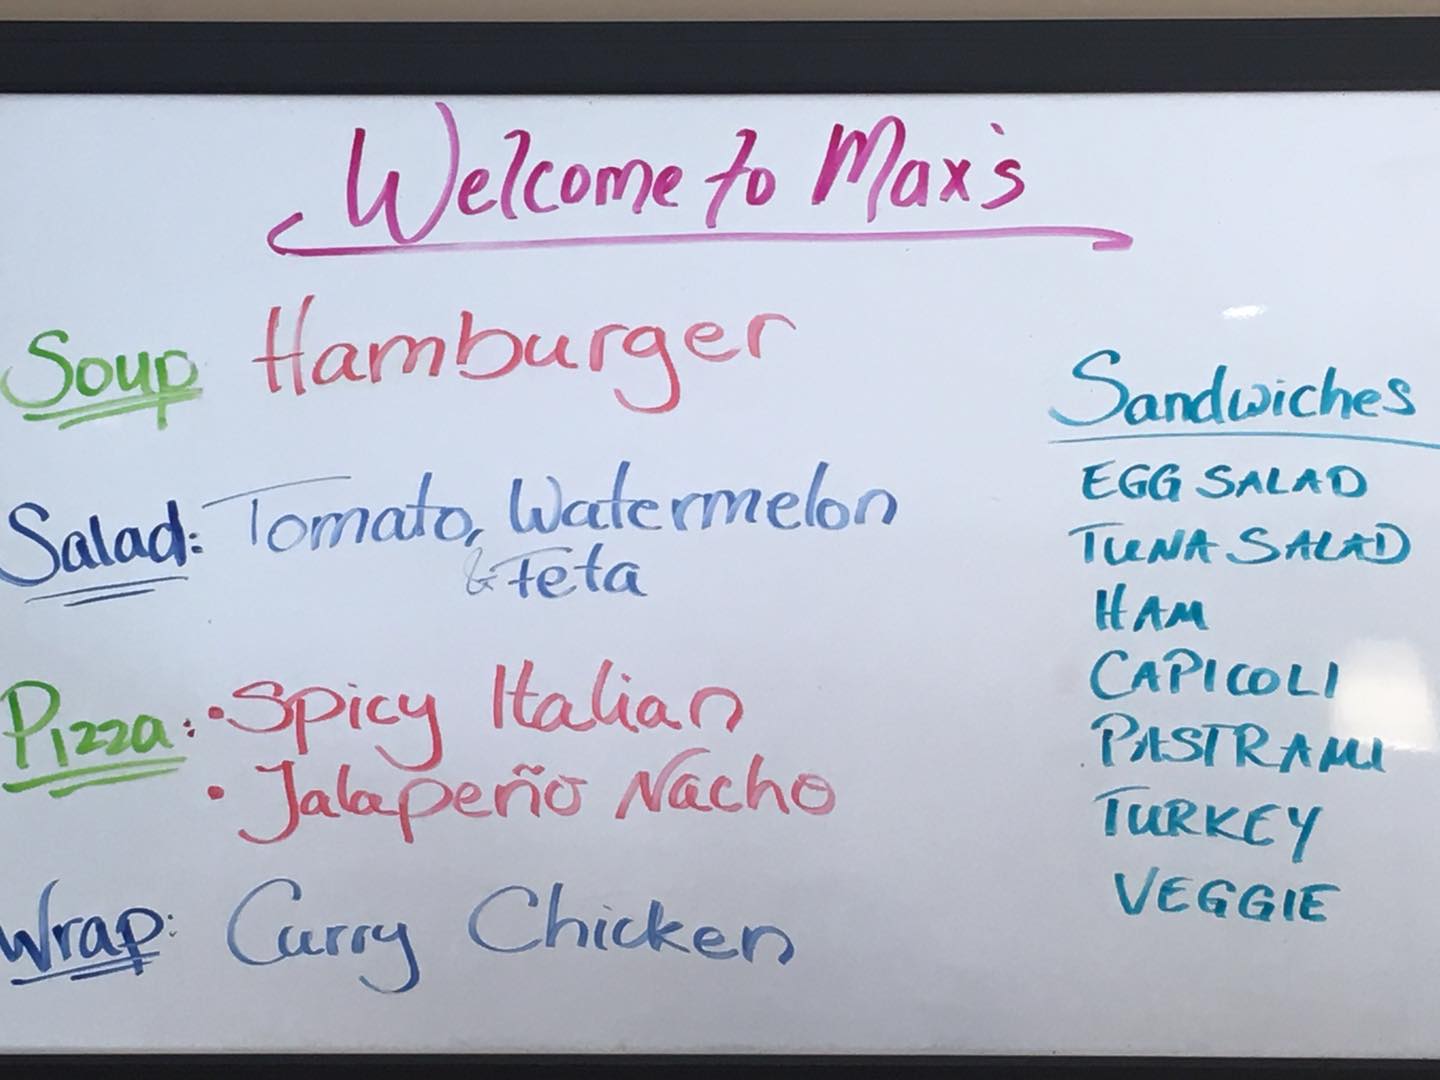 Welcome to Max's
Soup Hamburger
Salad: Tomato, Watermelon
& Feta
Pizza: • Spicy Italian
• Jalapeño Nacho
Wrap: Curry Chicken
Sandwiches
EGG SALAD
TUNA SALAD
HAM
CAPICOLI
PASTRAMI
TURKEY
VEGGIE